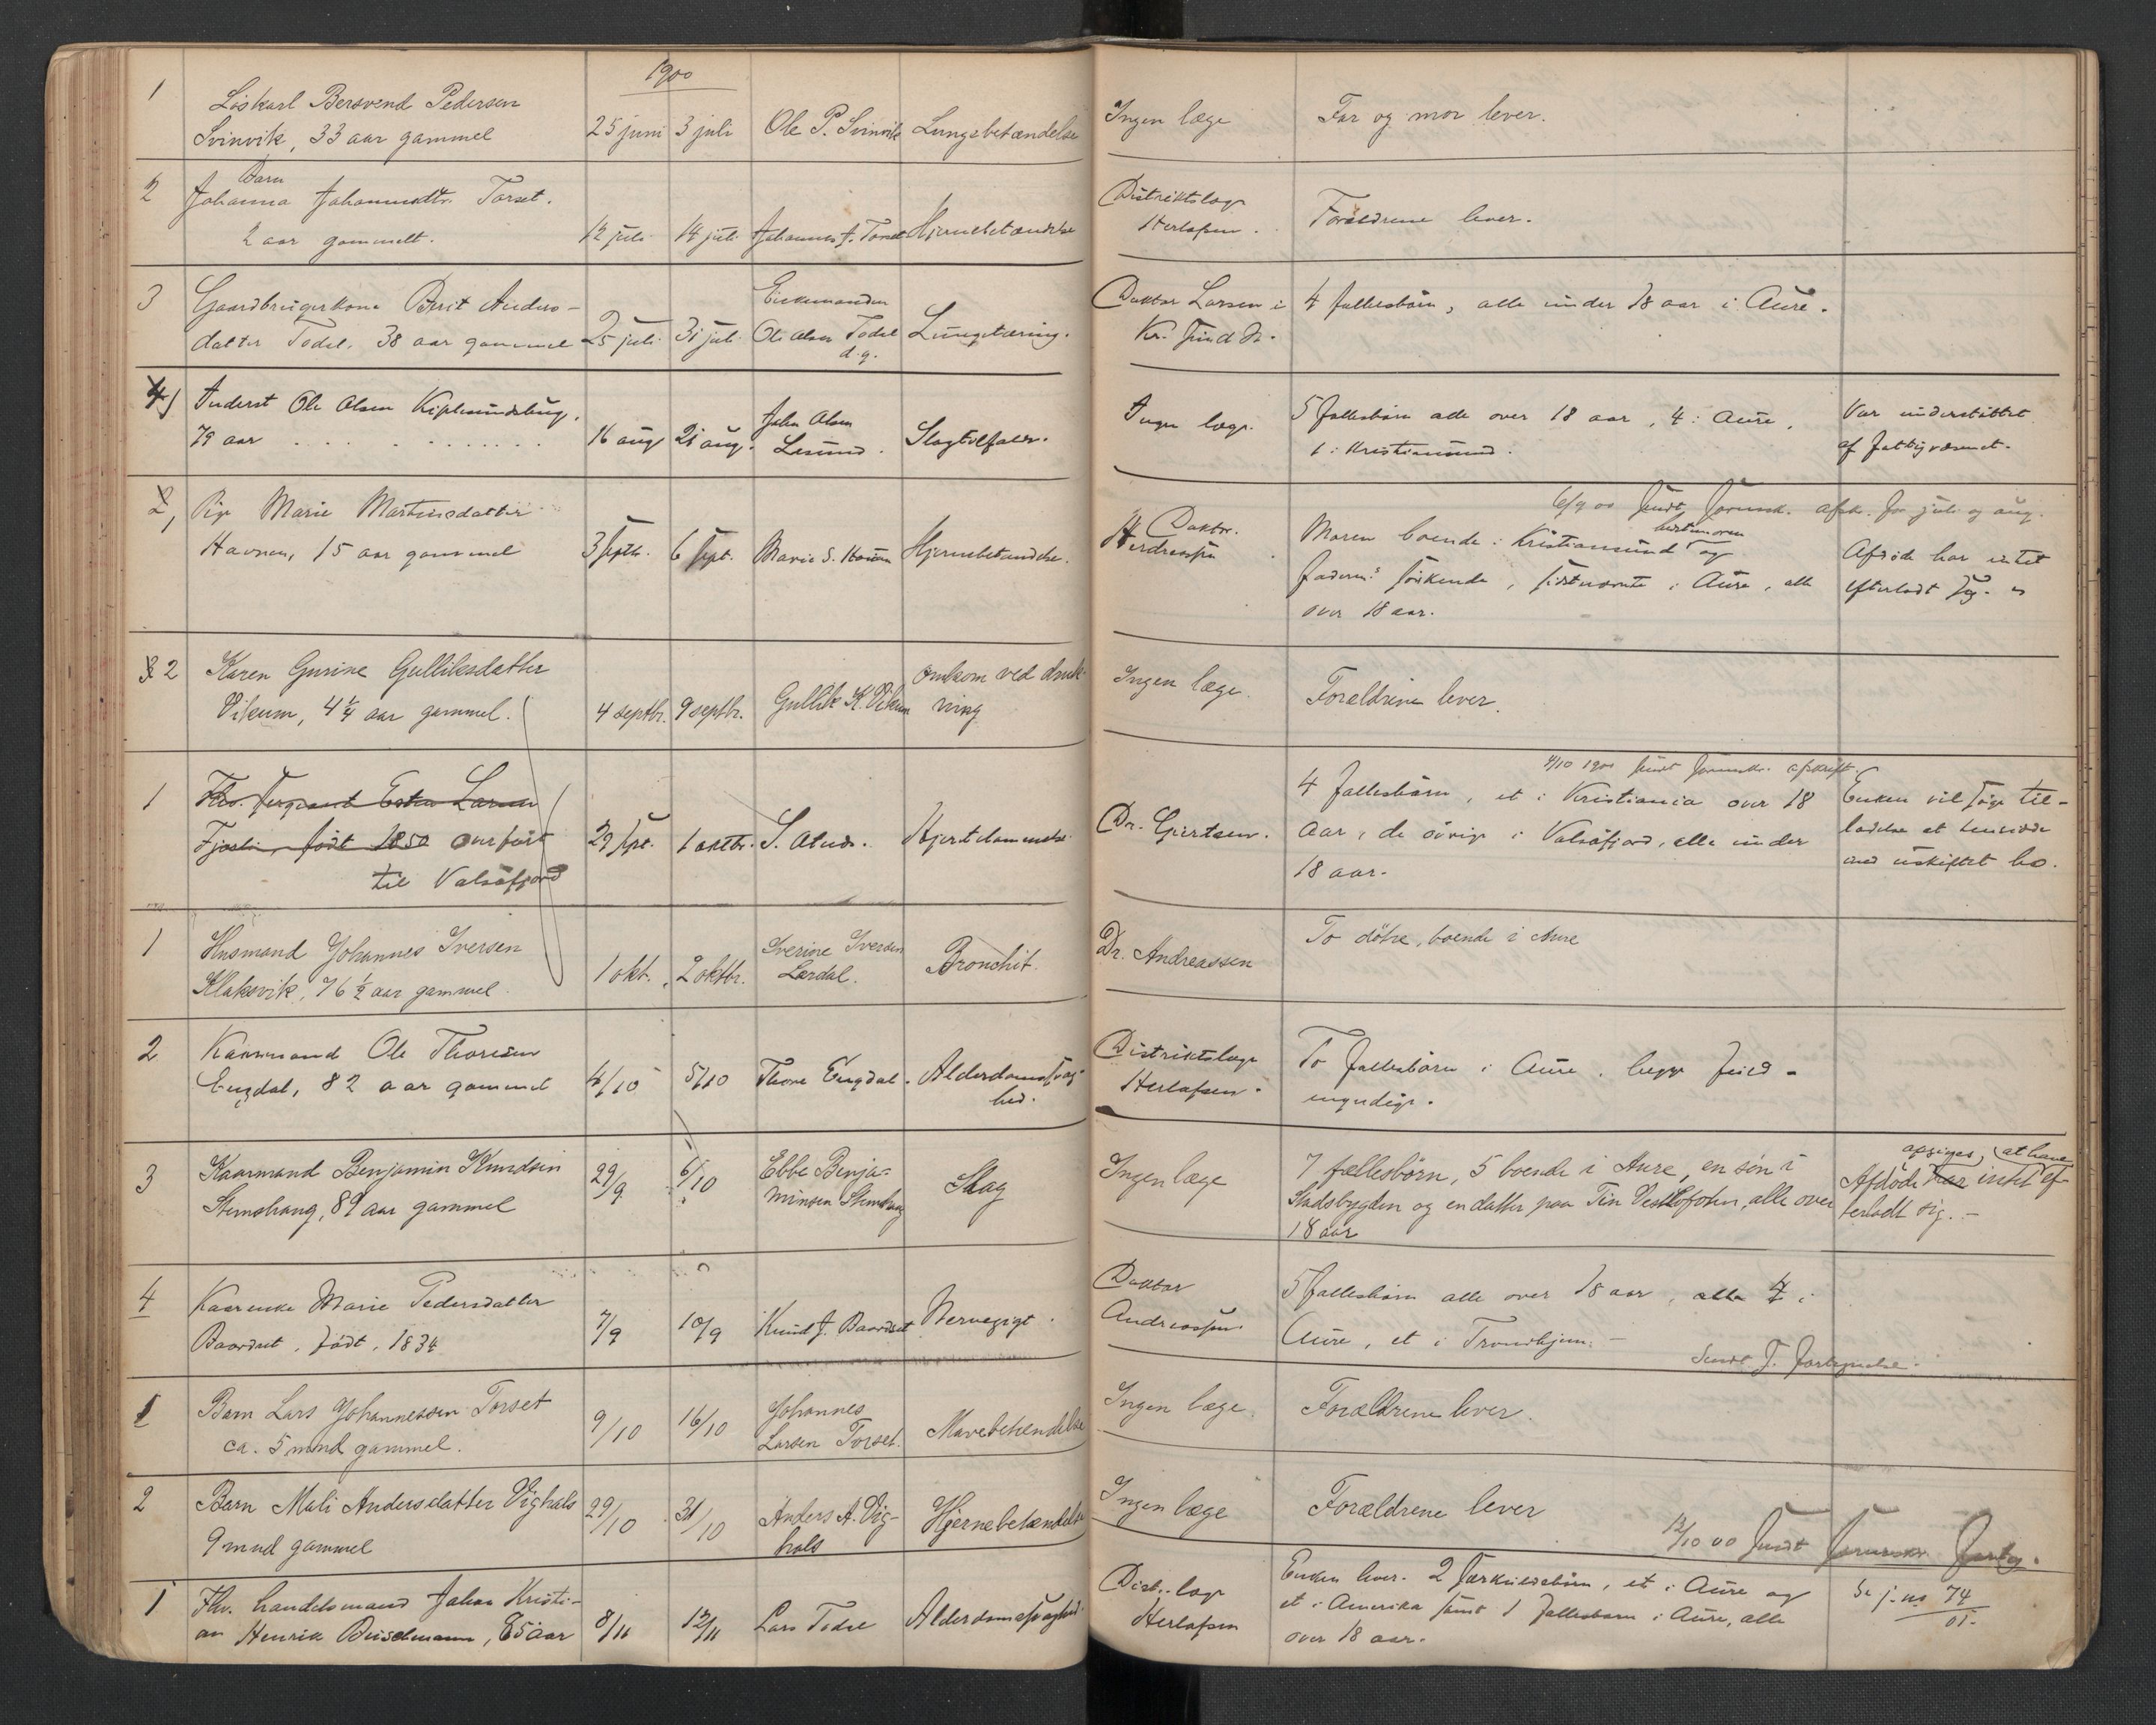 1900
1 Løskarl Bersvend Pedersen
Svinvik, 33 aar gammel 25 juni 3 juli Ole P. Svinvik Lungebetændelse Ingen læge Far og mor lever.
2 Barn
Johanna Johannesdtr. Torset.
2 aar gammelt. 12 juli 14 juli Johannes J. Torset Hjernebetændelse Distriktslæge
Herlofsen. Forældrene lever.
3 Gaardbrugerkone Berit Anders-
datter Todal. 38 aar gammel 25 juli 31 juli Enkemanden
Ole Olsen Todal
d.g. Lungetæring. Doktor Larsen i
Kr.sund N. 4 fællesbørn, alle under 18 aar i Aure.
4) Inderst Ole Olsen Kiplesundsbug.
79 aar 16 aug 21 aug. John Olsen
Lesund. Slagtilfælde. Ingen læge. 5 fællesbørn alle over 18 aar, 4 i Aure,
1 i Kristiansund. Var understøttet
af fattigvæsenet.
6/9 00 sendt sorensk. afsk. for juli og aug.
2, Pige Marie Martinsdatter
Havnen, 15 aar gammel 3 septb. 6 sept. Marie S. Havnen Hjernebetændelse. Doktor
Moren boende i Kristiansund og
faderns søskende, sidstnævnte i Aure, alle
over 18 aar. Afdøde har intet
efterladt sig.
3 2 Karen Gurine Gulliksdatter
Vikum, 4 1/4 aar gammel. 4 septbr. 9 septbr. Gullik K. Vikum Omkom ved druk-
ning Ingen læge. Forældrene lever.
4/10 1900 sendt sorenskr. afskrift.
1 Fhv. sergeant Esten Larsen
Fjøsli, født 1850 overført
til Valsøfjord 29 sept. 1 oktbr. S. Hjertelammelse. Dr. Gjertsen. 4 fællesbørn, et i Kristiania over 18
aar, de øvrige i Valsøfjord, alle under
18 aar. Enken vil søge til-
ladelse at hensidde
med uskiftet bo.
1 Husmand Johannes Iversen
Klaksvik, 76 1/2 aar gammel. 1 okt. 2 oktbr. Iverine Iversen
Lerdal. Bronchit. Dr. Andreassen To døtre, boende i Aure
2 Kaarmand Ole Thoresen
Engdal, 82 aar gammel 4/10 5/10 Thore Engdal. Alderdomssvag-
hed. Distriktslæge
Herlofsen. To fællesbørn i Aure, begge fuld-
myndige.
3 Kaarmand Benjamin Knudsen
Stemshaug, 89 aar gammel 29/9 6/10 Ebbe Benja-
minsen Stemshaug Slag Ingen læge 7 fællesbørn, 5 boende i Aure, en søn i
Stadsbygden og en datter paa Tin Vestlofoten, alle over
18 aar opgives, at have
Afdøde har intet ef-
terladt sig. -
4 Kaarenke Marie Pedersdatter
Baardset, født, 1834 7/9 10/9 Knud J. Baardset Nervegigt. Doktor
Andreassen. 5 fællesbørn alle over 18 aar, alle 4 i
Aure, et i Trondhjem. -
Sendt J. fortegnelse.
1 Barn Lars Johannessen Torset
ca. 5 mnd gammel. 9/10 16/10 Johannes
Larsen Torset. Mavebetændelse Ingen læge. Forældrene lever.
2 Barn Mali Andersdatter Vighals
9 mnd gammel 29/10 31/10 Anders A. Vig-
hals Hjernebetændelse Ingen læge Forældrene lever
12/10 00 sendt sorenskr. forteg.
1 Fhv. handelsmand Johan Kristi-
an Henrik Buschmann, 85 aar 8/11 12/11 Lars Todal Alderdomssvaghed. Distr. læge
Herlofsen Enken lever. 2 særkuldsbørn, et i Aure og
et i Amerika samt 1 fællesbarn i Aure, alle
over 18 aar. Se j. no 74/01.